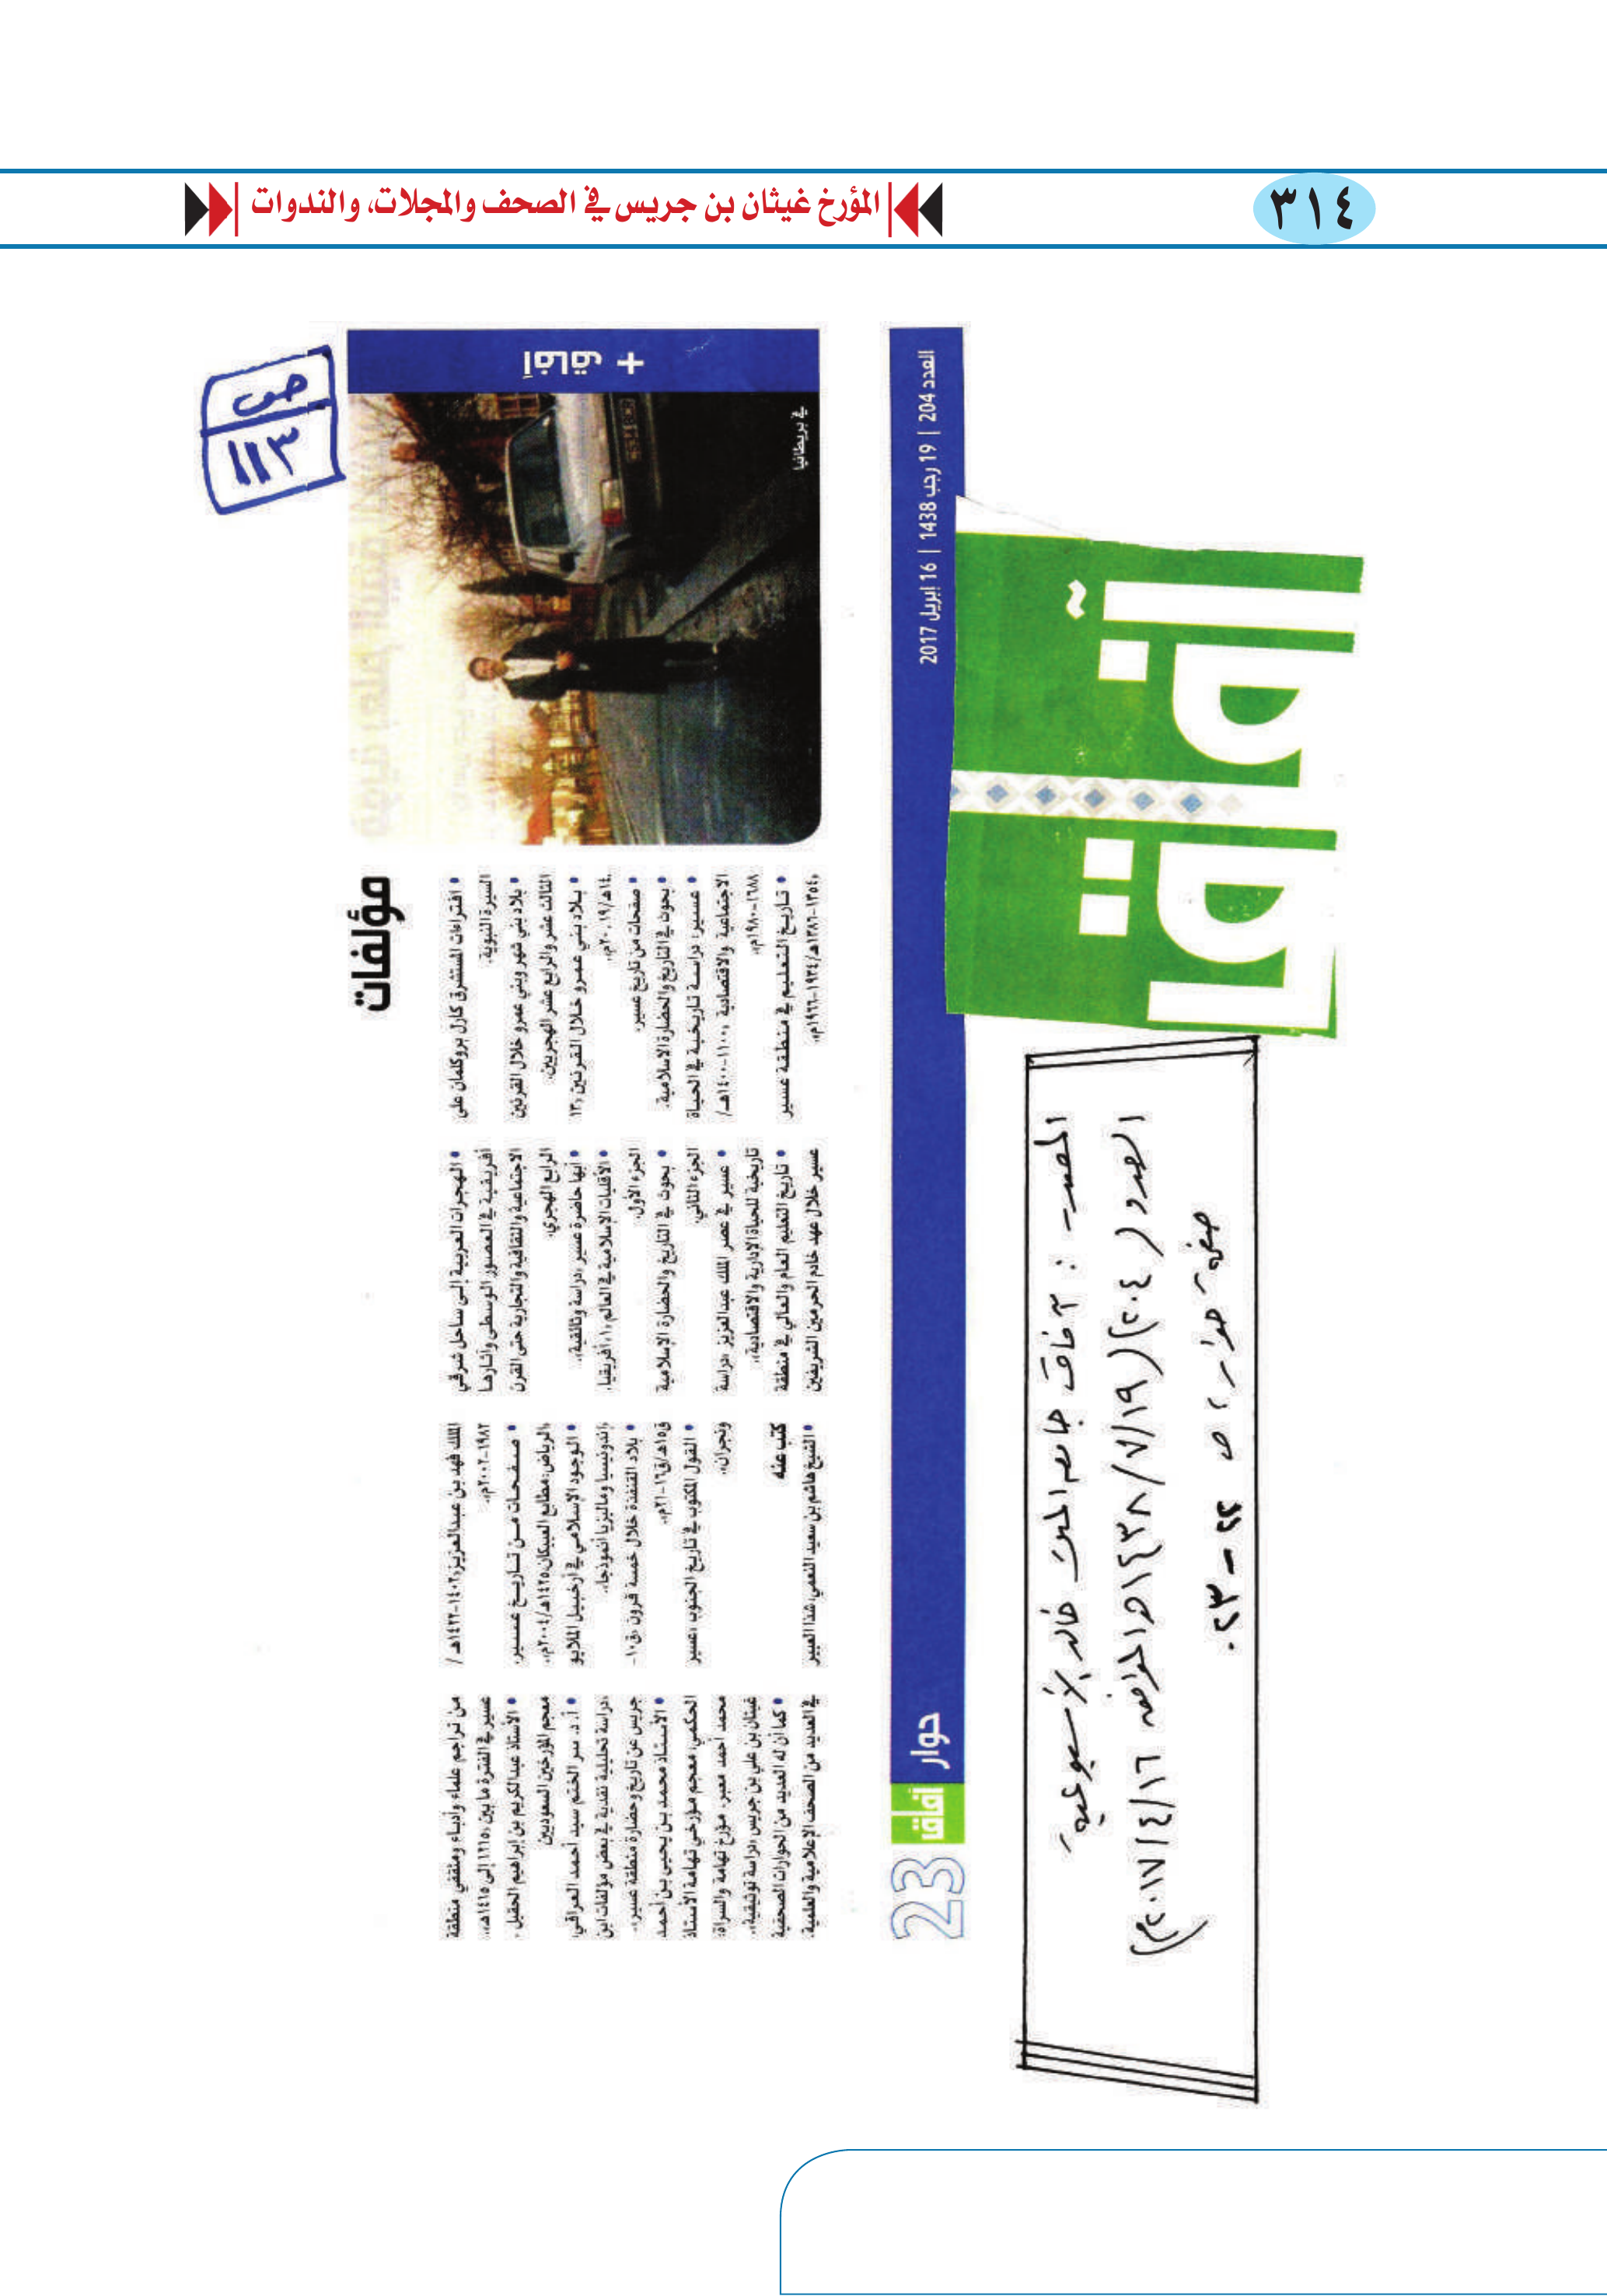 ٣١٤
المؤرخ غيثان بن جريس في الصحف والمجلات، والندوات
ص
١١٣
آفاق +
في بريطانيا
مؤلفات
• افتراءات المستشرق كارل بروكلمان على
السيرة النبوية.
• بلاد بني شهر وبني عمرو خلال القرنين
الثالث عشر والرابع عشر الهجريين.
• بلاد بني عمرو خلال القرنين «١٣
.١٤هـ/١٩.٢٠م».
• صفحات من تاريخ عسير.
• بحوث في التاريخ والحضارة الاسلامية.
• عسير: دراسة تاريخية في الحياة
الاجتماعية والاقتصادية «١١٠٠-١٤٠٠هـ/
١٦٨٨-١٩٨٠م»
• تاريخ التعليم في منطقة عسير
«١٣٥٤-١٣٨٦هـ/١٩٣٤-١٩٦٦م».
• الهجرات العربية إلى ساحل شرقي
أفريقية في العصور الوسطى وآثارها
الاجتماعية والثقافية والتجارية حتى القرن
الرابع الهجري.
• أبها حاضرة عسير «دراسة وثائقية».
• الأقليات الإسلامية في العالم «١» أفريقيا.
الجزء الأول.
• بحوث في التاريخ والحضارة الإسلامية
الجزء الثاني.
• عسير في عصر الملك عبدالعزيز «دراسة
تاريخية للحياة الإدارية والاقتصادية».
• تاريخ التعليم العام والعالي في منطقة
عسير خلال عهد خادم الحرمين الشريفين
الملك فهد بن عبدالعزيز «١٤٠٢-١٤٢٢هـ /
١٩٨٢-٢٠٠٢م».
• صفحات من تاريخ عسير.
«الرياض: مطابع العبيكان، ١٤٢٥هـ/٢٠٠٤م».
• الوجود الإسلامي في أرخبيل الملايو
«إندونيسيا وماليزيا أنموذجا».
• بلاد القنفذة خلال خمسة قرون «ق١٠-
ق١٥هـ/ق١٦-٢١م».
• القول المكتوب في تاريخ الجنوب «عسير
ونجران».
كتب عنه
• الشيخ هاشم بن سعيد النعمي: شذا العبير
من تراجم علماء وأدباء ومثقفي منطقة
عسير في الفترة ما بين «١٢١٥ إلى ١٤١٥هـ».
• الأستاذ عبدالكريم بن إبراهيم الحقيل -
معجم المؤرخين السعوديين
• أ. د. سر الختم سيد أحمد العراقي:
«دراسة تحليلية نقدية في بعض مؤلفات ابن
جريس عن تاريخ وحضارة منطقة عسير».
• الأستاذ محمد بن يحيى بن أحمد
الحكمي، معجم مؤرخي تهامة الأستاذ
محمد أحمد معبر. مؤرخ تهامة والسراة:
غيثان بن علي بن جريس «دراسة توثيقية».
• كما أن له العديد من الحوارات الصحفية
في العديد من الصحف الإعلامية والعلمية.
العدد 204 | 19 رجب 1438 | 16 ابريل 2017
حوار
آفاق
23
آفاق
المصدر : آفاق جامعة الملك خالد الأسبوعية
العدد (٢٠٤) (١٤٣٨/٧/١٩هـ الموافق ٢٠١٧/٤/١٦م)
صفحة حوار، ص ٢٢ - ٢٣.